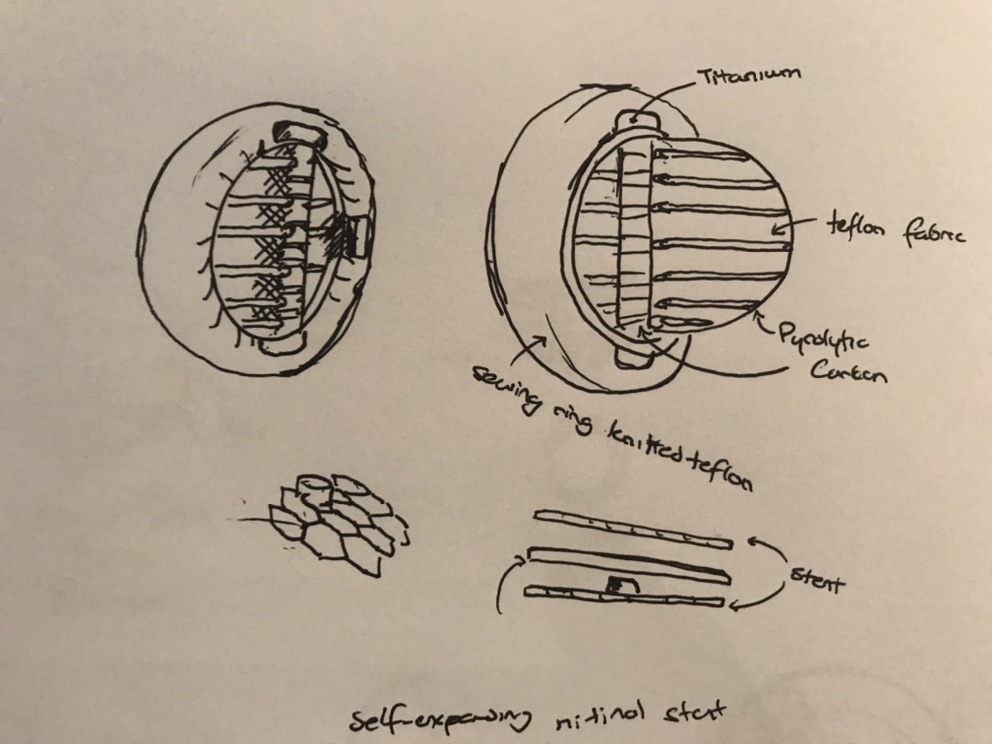 Titanium
teflon fabric
Pyrolytic
Carbon
Sewing ring knitted teflon
stent
Self-expanding nitinol stent